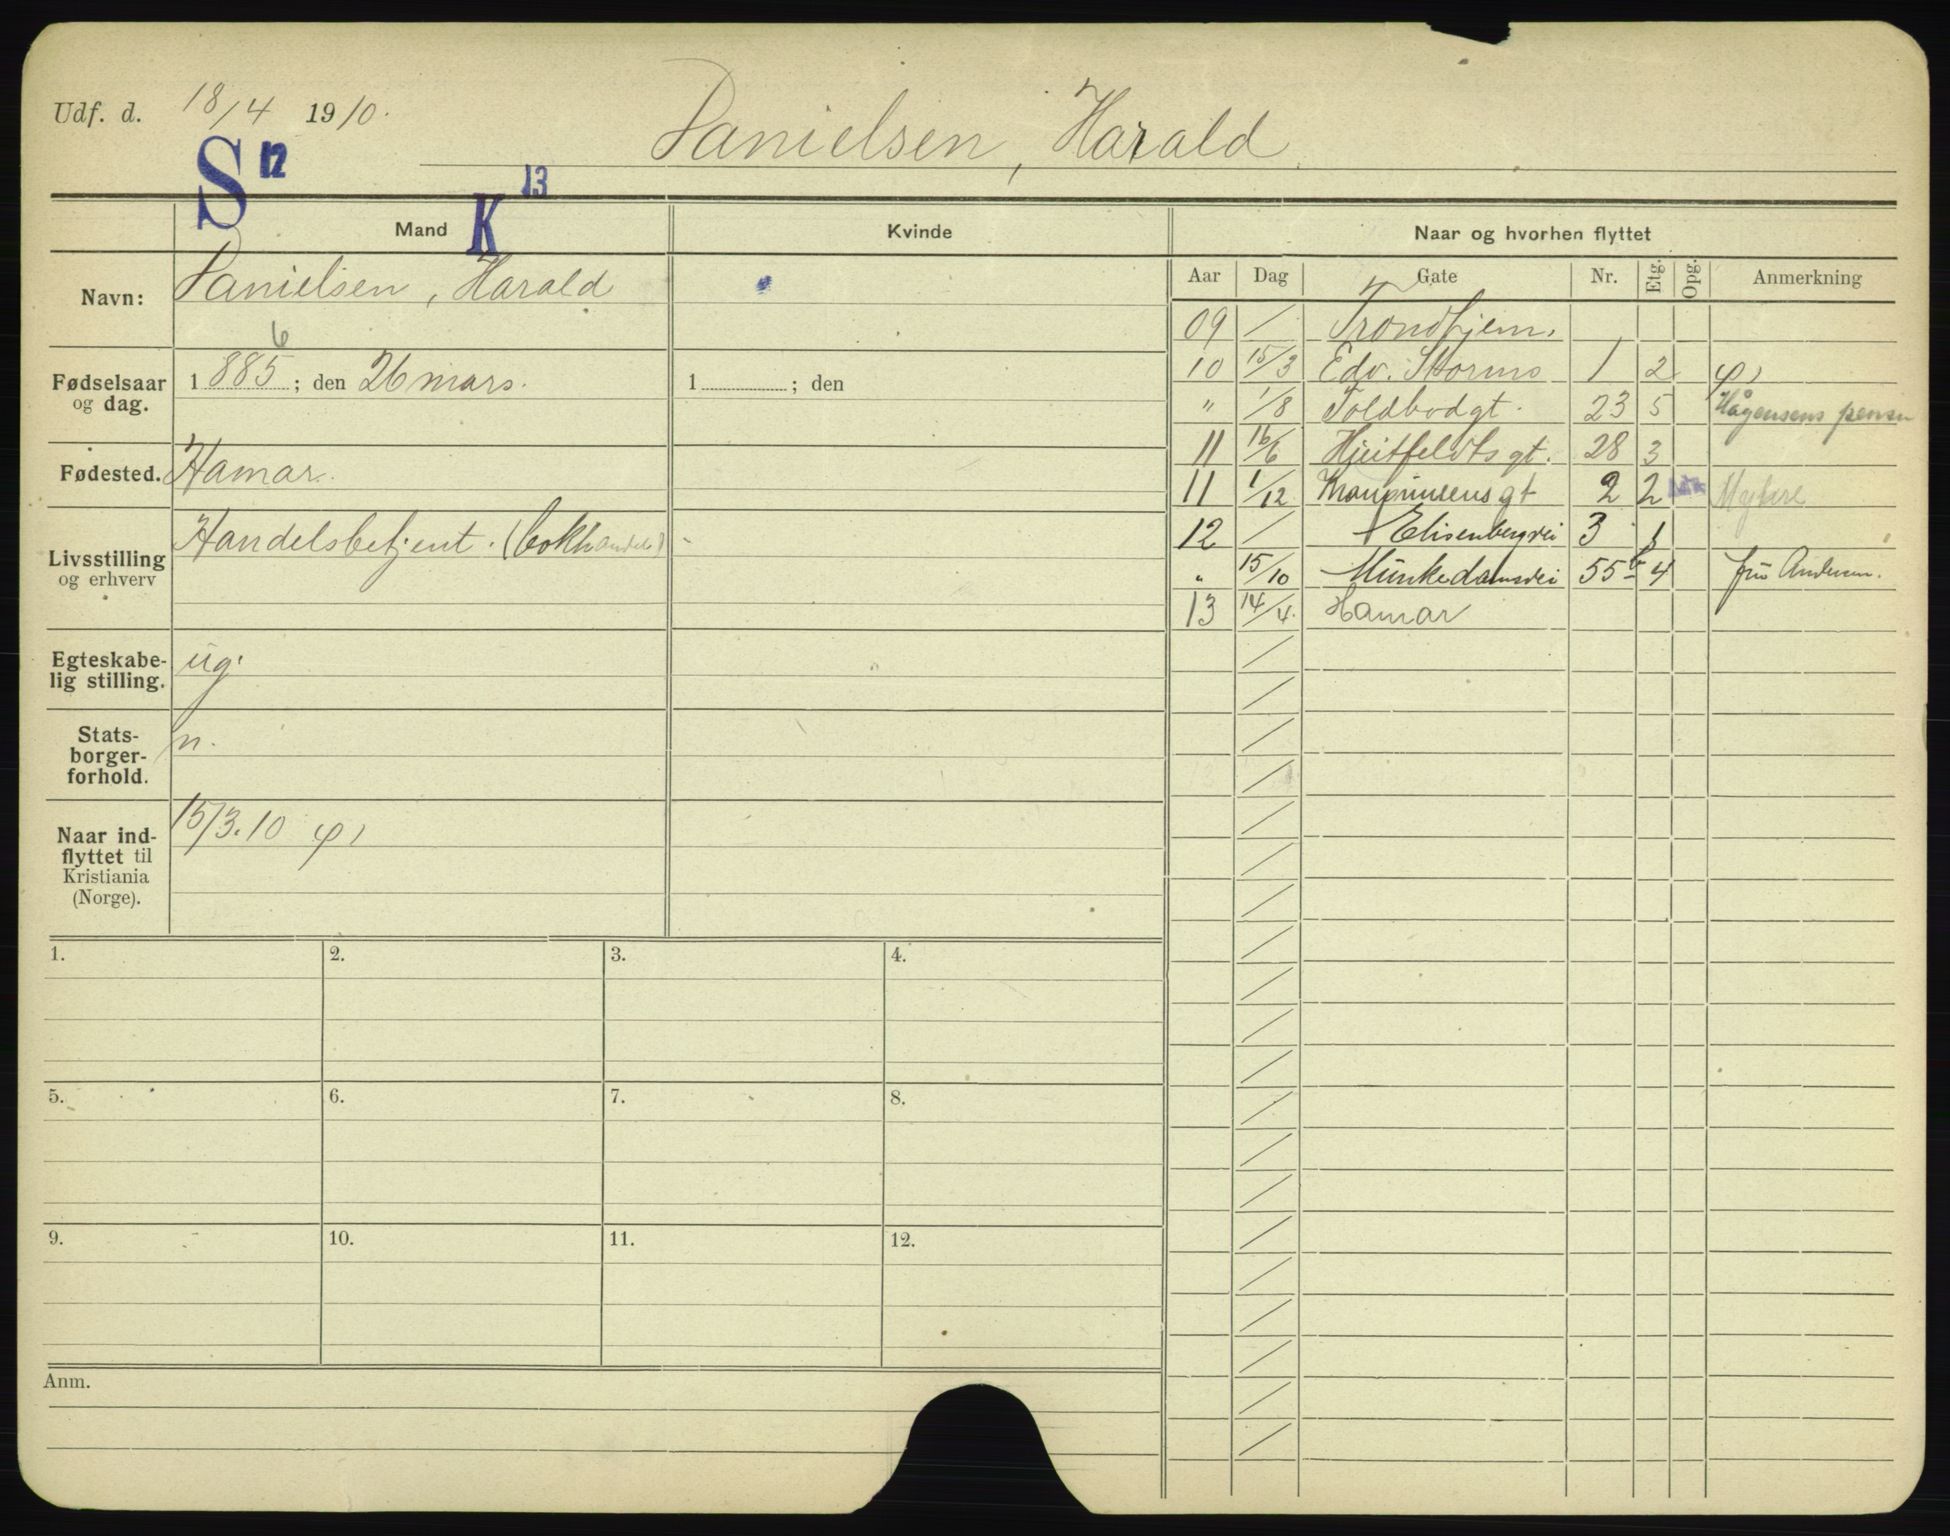 Udf. d. 18/4 1910.
Danielsen, Harald
S 12
K 13
Mand
Kvinde
Naar og hvorhen flyttet
Navn: Danielsen, Harald
Aar Dag Gate Nr. Etg. Opg. Anmerkning
09 / Trondhjem.
10 15/3 Edv. Storms 1 2
" 1/8 Toldbodgt. 23 5 Hågensens
11 16/6 Hvitfeldts gt. 28 3
11 1/12 gt 2 2
12 / Elisenbergvei 3 1
" 15/10 Munkedamsvei 55 b 4 fru Andersen.
13 14/4 Hamar
6
Fødselsaar og dag. 1885; den 26 mars.
1 ; den
Fødested. Hamar.
Livsstilling og erhverv Handelsbetjent. (bokhandel)
Egteskabe-
lig stilling. ug.
Stats-
borger-
forhold. n.
Naar ind-
flyttet til
Kristiania
(Norge). 15/3.10
1. 2. 3. 4.
5. 6. 7. 8.
9. 10. 11. 12.
Anm.